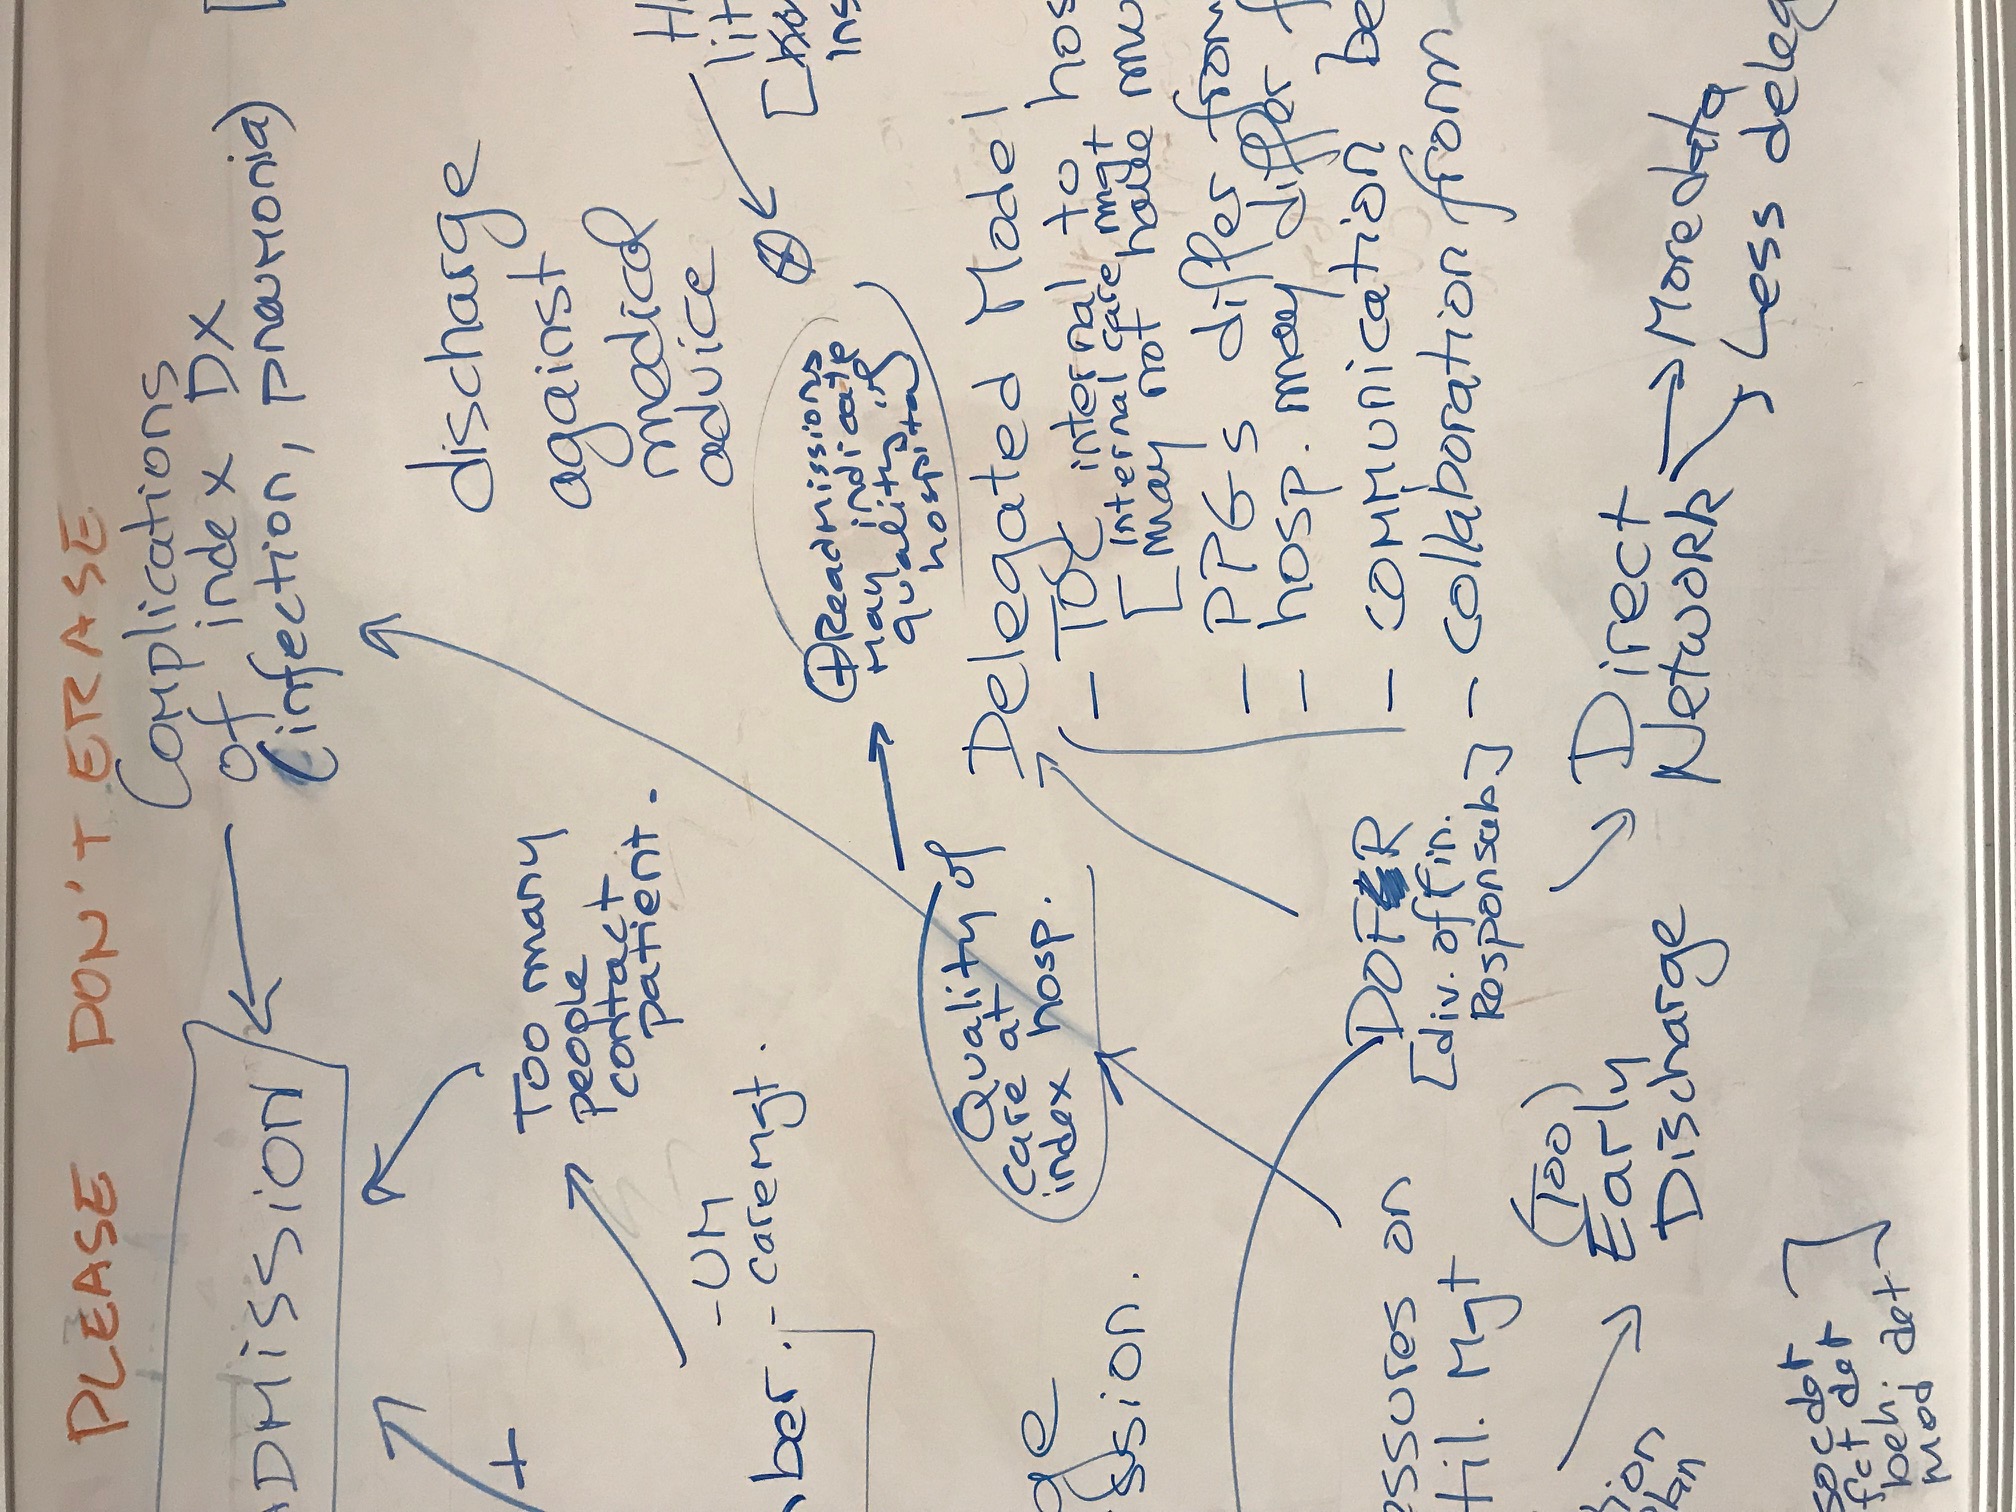 PLEASE DON'T ERASE
ADMISSION
Complications
of index DX
(infection, pneumonia)
[
+
Too many
people
contact
patient.
discharge
against
medical
advice
- UM
ber. - care mgt.
H
lit
[
Ins
+ Readmissions
may indicate
quality of
hospital
Quality of
care at
index hosp.
ge
ssion.
Delegated Model
- TOC internal to hos
internal care mgt
[may not have mu
- PPGs differ from
- hosp. may differ f
- communication be
- collaboration from
essures on
til. Mgt
DOFR
[div. of fin.
Responsab.]
(Too)
Early
Discharge
Direct
Network
More data
Less deleg
ion
soc det
fct det
beh.
mod det
]